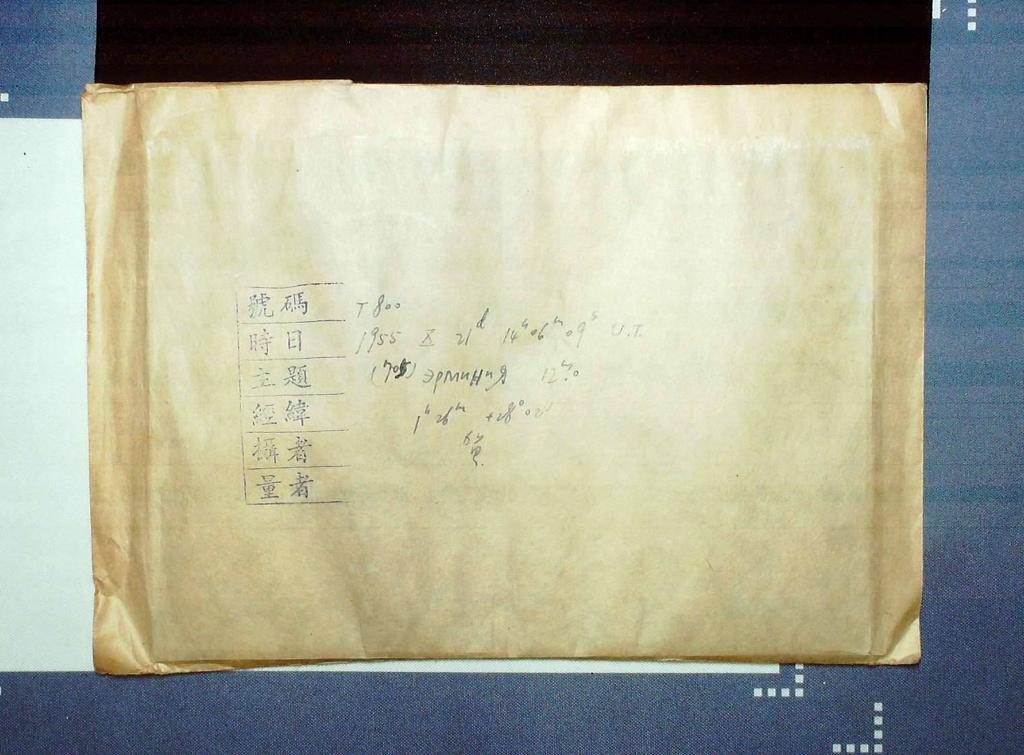 號碼 T 800
時日 1955 X 21ᵈ 14ʰ 06ᵐ 09ˢ U.T.
主題 (705) Эрминия 12ᵐ.0
經緯 1ʰ 26ᵐ +28° 02'
攝者
量者